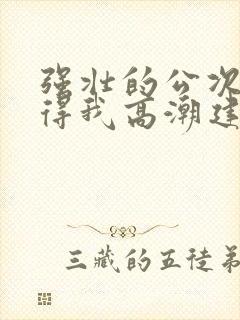 强壮的公次
得我高潮连
三藏的五徒弟